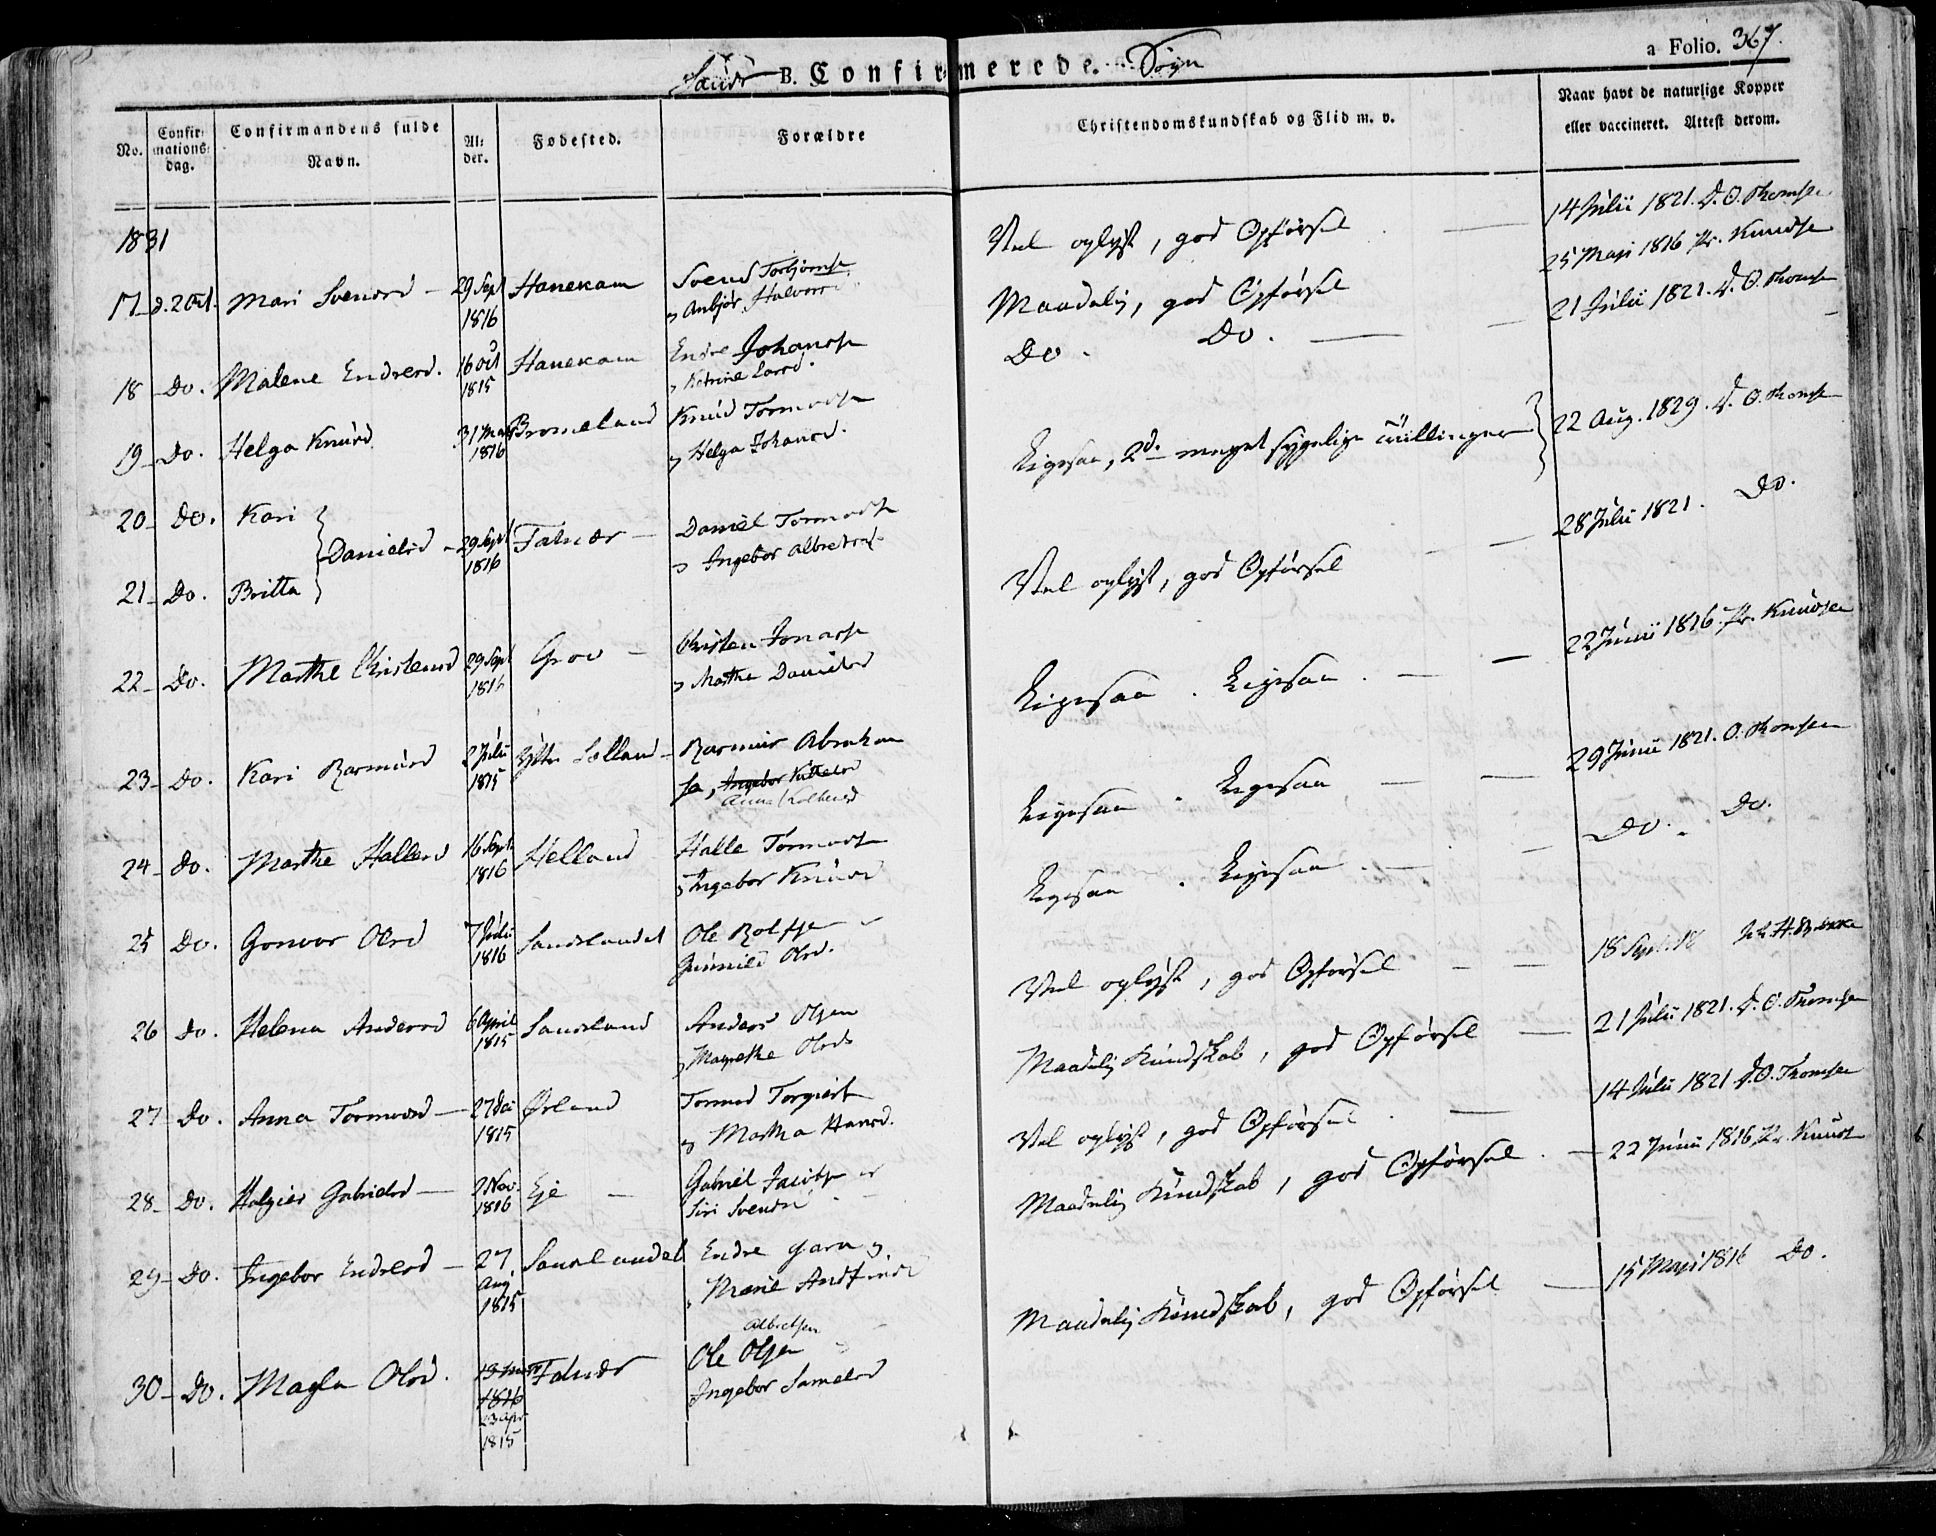 Sands B. Confirmerede. Sogn
a Folio. 367.
No. Confirmations-dag. Confirmandens fulde Navn. Alder. Fødested. Forældre Christendomskundskab og Flid m. v. Naar havt de naturlige Kopper eller vaccineret. Attest derom.
1831
17 d. 2 Oct. Mari Svensd 29 Sept 1816 Hanekam Svend Torbjørns. og Anbjør Halvorsd. Vel oplyst, god Opførsel 14 Julii 1821. D. O. Thomsen
18 Do. Malene Endresd. 16 Oct 1815 Hanekam Endre Johans. og Katrine Larsd. Maadelig, god Opførsel 25 Maji 1816 Pr. Knudsen
19 Do. Helga Knudsd 31 1816 Bromeland Knud Tormods. og Helga Johansd. Do. Do. 21 Julii 1821. D. O. Thomsen
20 Do. Kari
Danielsd 29 Sept 1816 Falnes Daniel Tormods. og Ingebor Albretsd. Ligesaa, 2de meget sygelige Tvillinger 22 Aug. 1829. D. O. Thomsen
21 Do. Britta
22 Do. Marthe Christensd 29 Sept 1816 Grov Christen Jonas. og Marthe Danielsd Vel oplyst, god Opførsel 28 Julii 1821. Do.
23 Do. Kari Rasmusd 2 Julii 1815 Yttre Lolland Rasmus Abraham sen, Ingebor Kittelsd Ligesaa. Ligesaa. 22 Junii 1816. Pr. Knudsen
Anna
24 Do. Marthe Hallesd 16 Sept. 1816 Helland Halle Tormods. og Ingebor Knudsd Ligesaa. Ligesaa 29 Junii 1821. O. Thomsen
25 Do. Gonvor Olsd 7 Julii 1816 Sandslandet Ole Rolfsen Gunnild Olsd. Ligesaa. Ligesaa. Do. Do.
26 Do. Helena Andersd 6 April 1815 Sandsland Anders Olsen og Magrethe Olsd Vel oplyst, god Opførsel 18 Sept. 18
27 Do. Anna Tormodsd 27 Dec 1815 Ørland Tormod Torgiers. og Martha Hansd. Maadelig Kundskab, god Opførsel 21 Julii 1821. D. O. Thomsen
28 Do. Gabrielsd 2 Nov. 1816 Eje Gabriel Jacobsen Siri Svensd Vel oplyst, god Opførsel 14 Julii 1821 D. O. Thomsen
29 Do. Ingebor Endresd 27 Aug 1815 Sandslandet Endre og Marie Maadelig Kundskab, god Opførsel 22 Junii 1816 Pr. Knuds.
Albretsen
30 Do. Magla Olsd. 13 1816 Falnes Ole Olsen Ingebor Samelsd Maadelig Kundskab, god Opførsel 15 Maji 1816 Do.
23 Apr 1815